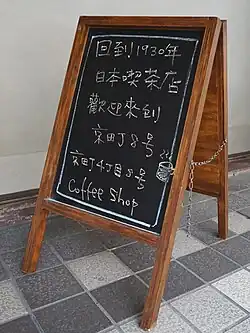 回到!1930年
日本喫茶店
歡迎來到
京田J8号
京田J4丁目8号
Coffee Shop